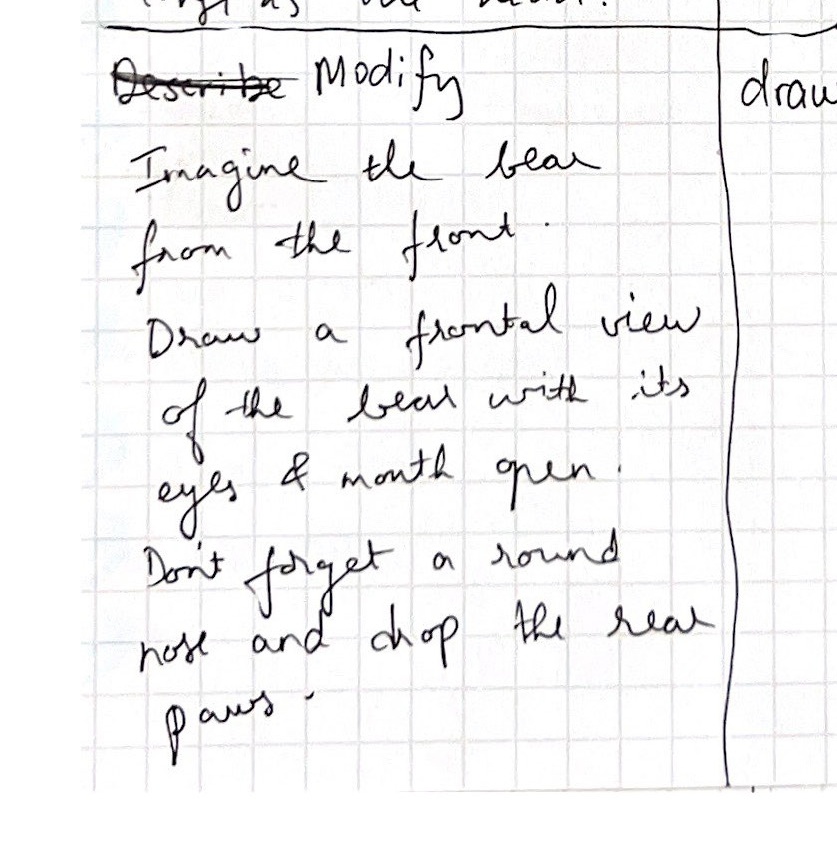 Describe Modify
draw
Imagine the bear
from the front.
Draw a frontal view
of the bear with its
eyes & mouth open.
Don't forget a round
nose and chop the rear
paws.